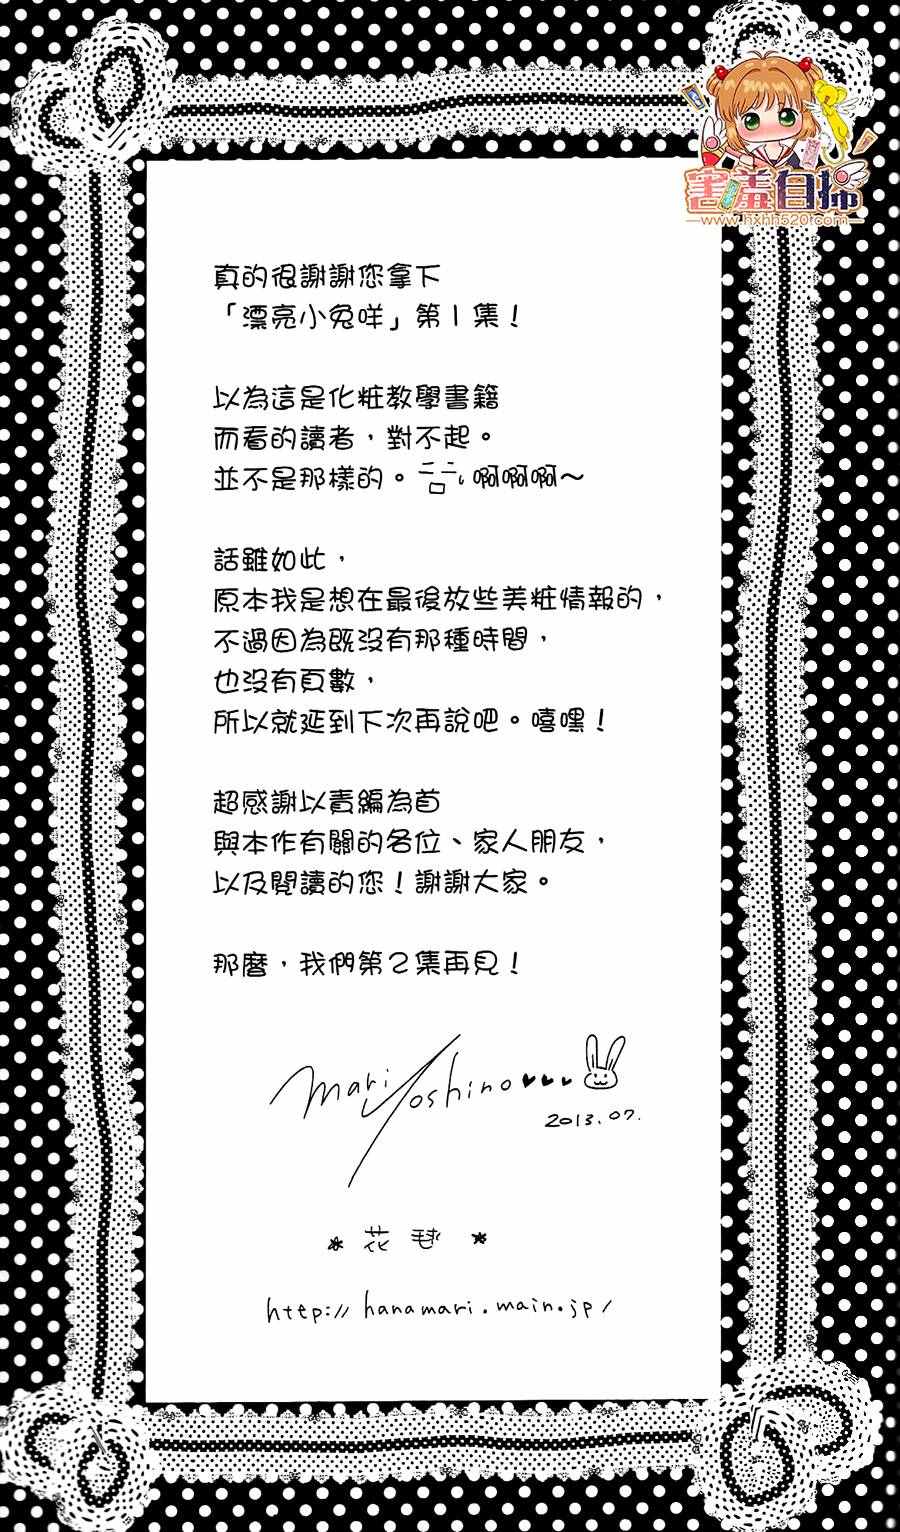 害羞自掃
www.hxhh520.com
真的很謝謝您拿下
「漂亮小兔咩」第1集！
以為這是化粧教學書籍
而看的讀者，對不起。
並不是那樣的。啊啊啊～
話雖如此，
原本我是想在最後放些美粧情報的，
不過因為既沒有那種時間，
也沒有頁數，
所以就延到下次再說吧。嘻嘿！
超感謝以責編為首
與本作有關的各位、家人朋友，
以及閱讀的您！謝謝大家。
那麼，我們第2集再見！
Mari Yoshino
2013.07.
* 花毬 *
http://hanamari.main.jp/